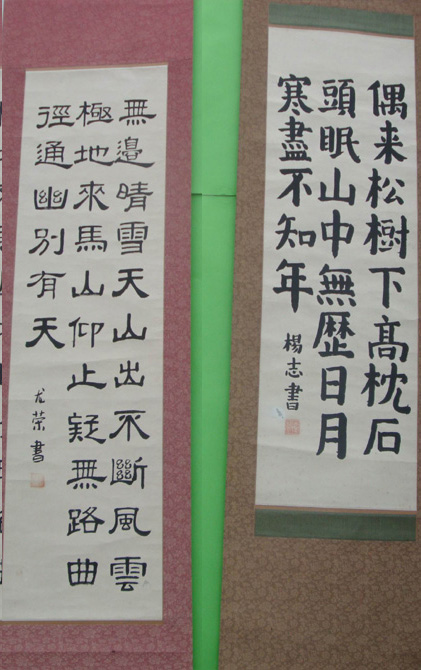 偶来松樹下髙枕石
頭眠山中無歴日月
寒盡不知年
楊志書
無邊晴雪天山出不斷風雲
極地來馬山仰止疑無路曲
徑通幽別有天
尤榮書